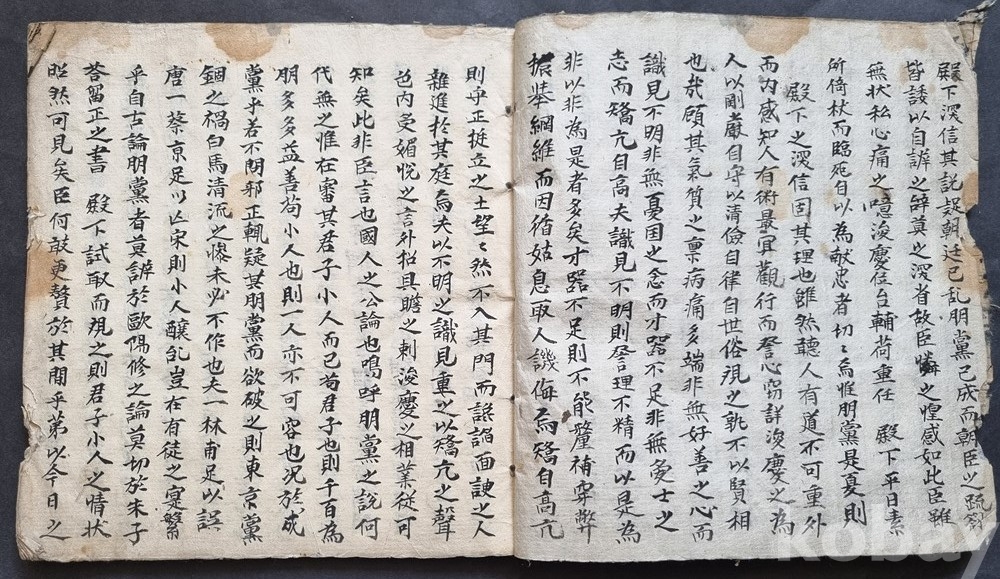 殿下深信其説誤朝廷已乱朋黨已成而朝臣之疏箚
皆諉以自辨之辞莫之深省故臣憐之惶感如此臣雖
無状私心痛之噫浚慶位台輔荷重任 殿下平日素
所倚杖而臨死自以為献忠者切〻焉惟朋黨是憂則
殿下之深信固其理也雖然聽人有道不可重外
而内感知人有術最宜觀行而詧心窃詳浚慶之為
人以剛嚴自守以清儉自律自世俗視之孰不以賢相
也哉顧其氣質之禀病痛多端非無好善之心而
識見不明非無憂国之念而才器不足非無愛士之
志而矯亢自高夫識見不明則詧理不精而以是為
非以非為是者多矣才器不足則不能釐補穿弊
振挙綱維而因循姑息取人譏侮焉矯自高亢
則乎正挺立之士望〻然不入其門而謟面諛之人
雜進於其庭焉夫以不明之識見重之以矯亢之聲
色内受媚悅之言外招具瞻之刺浚慶之相業従可
知矣此非臣言也國人之公論也嗚呼朋黨之說何
代無之惟在審其君子小人而已苟君子也則千百為
朋多多益善苟小人也則一人亦不可容也况於成
黨乎若不問邪正輒疑其朋黨而欲破之則東京黨
錮之禍白馬清流之慘未必不作也夫一林甫足以誤
唐一蔡京足以亾宋則小人釀乱豈在有徒之寔繁
乎自古論朋黨者莫辨於歐陽修之論莫切於朱子
答留正之書 殿下試取而覌之則君子小人之情状
昭然可見矣臣何敢更贅於其間乎弟以今日之
kobay